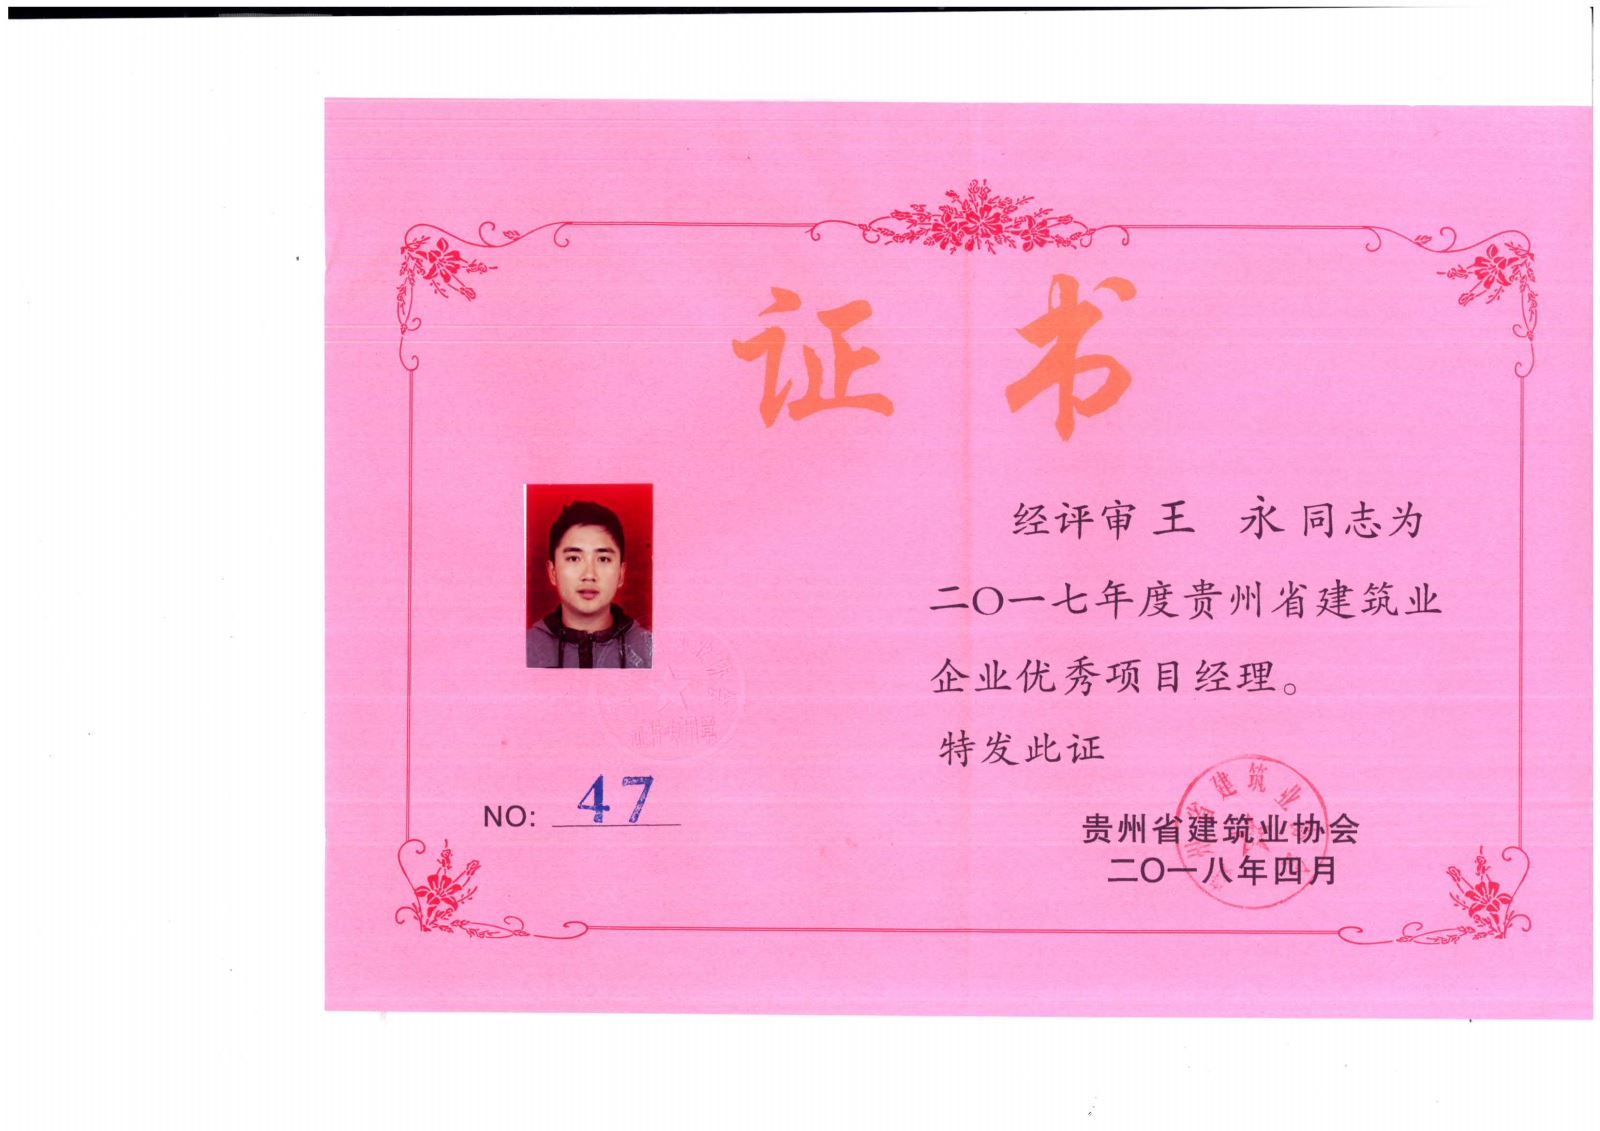 证 书
经评审 王 永 同志为
二〇一七年度贵州省建筑业
企业优秀项目经理。
特发此证
NO: 47
贵州省建筑业协会
二〇一八年四月
省建筑业